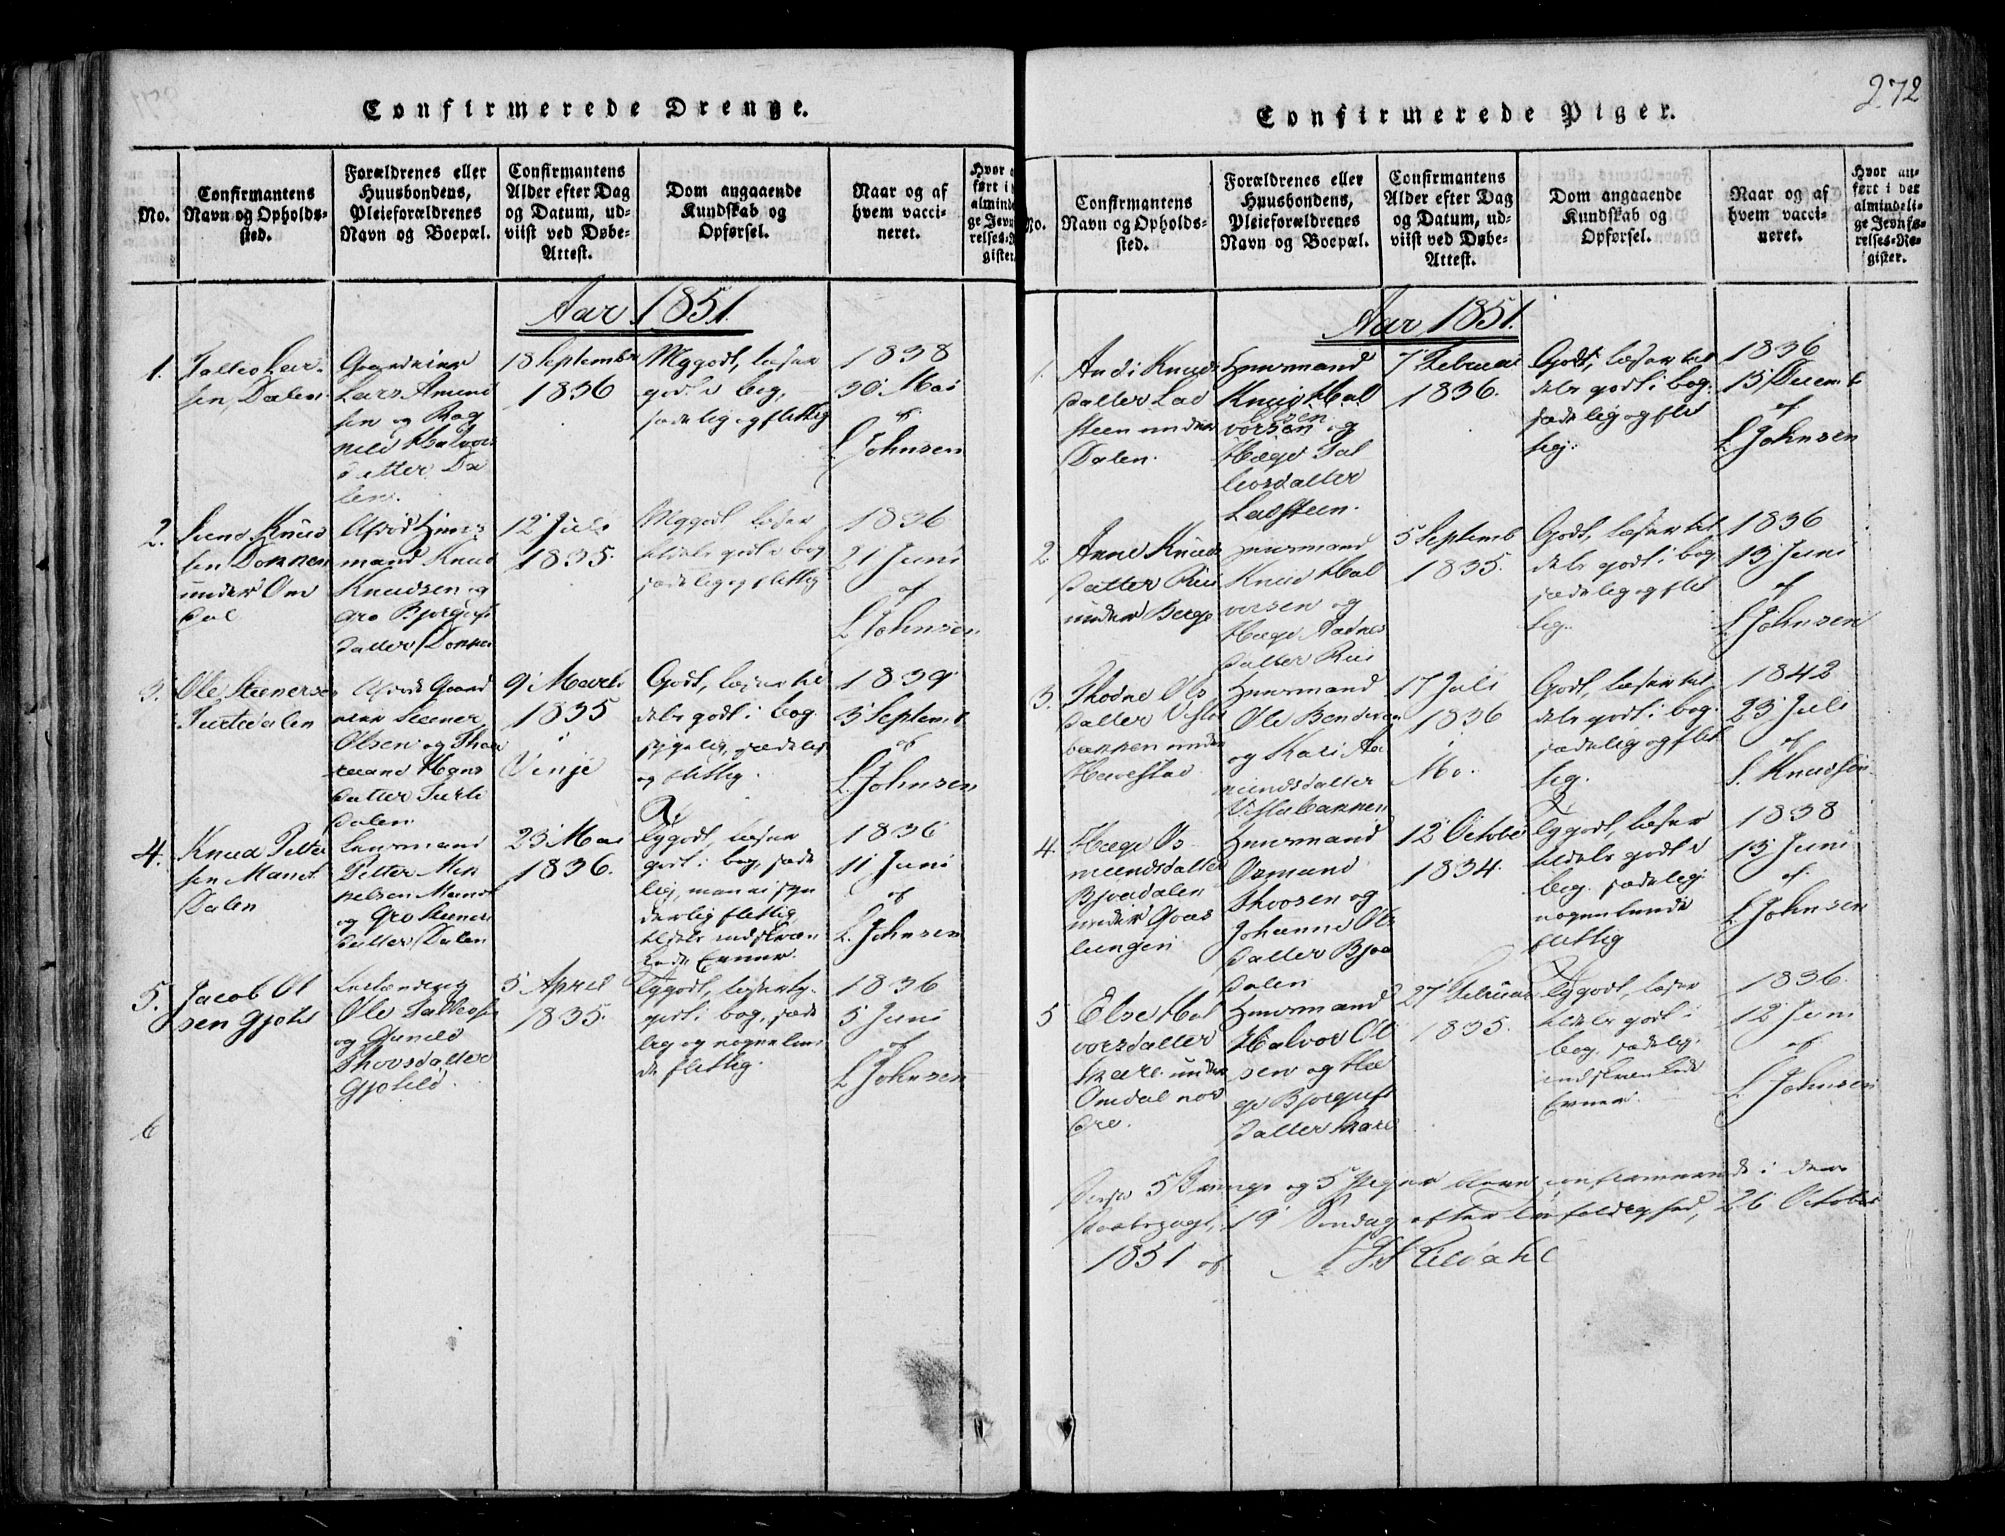 272
Confirmerede Drenge.
No.
Confirmantens
Navn og Opholds-
sted.
Forældrenes eller
Huusbondens,
Pleieforældrenes
Navn og Boepæl.
Confirmantens
Alder efter Dag
og Datum, ud-
viist ved Døbe-
Attest.
Dom angaaende
Kundskab og
Opførsel.
Naar og af
hvem vacci-
neret.
Hvor
ført i
almind
ge Jevn
relses-
gister.
Aar 1851.
1.
Dalen
Gaardeier
Lars Amund
sen og Rag
nild Halvors
datter Da
len.
18 Septembr
1836
Mg godt, læser
godt i bog,
sædelig og flittig
1838
30 Mai
af
L Johnsen
2.
Knud
sen Donnen
under Om
dal
Afdød Huus
mand Knud
Knudsen og
Gro Bjorgufs
datter Donnen
12 Juli
1835.
Mg godt læser
tildels godt i bog
sædelig og flittig
1836
21 Juni
af
L Johnsen
3.
Ole Steenersen
Afdøde Gaard
eier Steener
Olsen og
Hans
datter
dalen
9 Marts
1835
i
Vinje
Godt, læser til
dels godt i bog
sædelig
og flittig.
1839
3 Septemb
af
L. Johnsen
4.
Knud Petter
sen Mandt
Dalen
Lensmand
Petter
Mandt
og Gro Steeners
datter Dalen
23 Mai
1836.
Tg godt, læser
godt i bog, sæde
lig, men ei syn
derlig flittig,
tildels indskræn
kede Evner.
1836
11 Juni
af
L. Johnsen
5.
Jacob Ol
sen
Ole
og Gunild
datter
5 April
1835.
Tg godt, læser tg.
godt i bog, sæde
lig og nogenlun
de flittig.
1836
5 Juni
af
L Johnsen
6
Confirmerede Piger.
No.
Confirmantens
Navn og Opholds-
sted.
Forældrenes eller
Huusbondens,
Pleieforældrenes
Navn og Boepæl.
Confirmantens
Alder efter Dag
og Datum, ud-
viist ved Døbe-
Attest.
Dom angaaende
Kundskab og
Opførsel.
Naar og af
hvem vacci-
neret.
Hvor an-
ført i det
almindeli-
ge Jevnfø-
relses-Re-
gister.
Aar 1851.
1.
Knuds
datter Lad
steen under
Dalen.
Huusmand
Knud Hal
vorsen og
Hæge Tal
leivsdatter
Ladsteen.
7 Februar
1836.
Godt, læser til
dels godt i bog.
sædelig og flit
tig.
1836
15 Decemb
af
L Johnsen
2.
Anne Knuds
datter Rui
under Berge
Huusmand
Knud Hal
vorsen og
Hæge Aadnes
datter Rui
5 Septemb
1835.
Godt, læser til
dels godt i bog
sædelig og flit
tig.
1836
13 Juni
af
L Johnsen
3.
Ols
datter
under
Huusmand
Ole Bendixen
og Kari Aa
mundsdatter
17 Juli
1836
i
Mo.
Godt, læser til
dels godt i bog.
sædelig og flit
tig.
1842
23 Juli
af
S. Knudsen
4.
Hæge Os
mundsdatter
Bjaadalen
under
Huusmand
Osmund
og
Johanne Ols
datter Bjaa
dalen
12 October
1834.
Tg godt, læser
tildels godt i
bog. sædelig
nogenlunde
flittig
1838
13 Juni
af.
L Johnsen
5
Else Hal
vorsdatter
Skare under
Omdal nor
dre.
Huusmand
Halvor Ol
sen og Hæ
ge Bjorgufs
datter Skare
27 Februar
1835.
Tg godt, læser
tildels godt i
bog. sædelig.
indskrænkede
Evner.
1836.
12 Juni
af
L Johnsen
Disse 5 Drenge og 5 Piger bleve confirmerede i
19 Søndag efter Trefoldighed, 26 October
1851 af